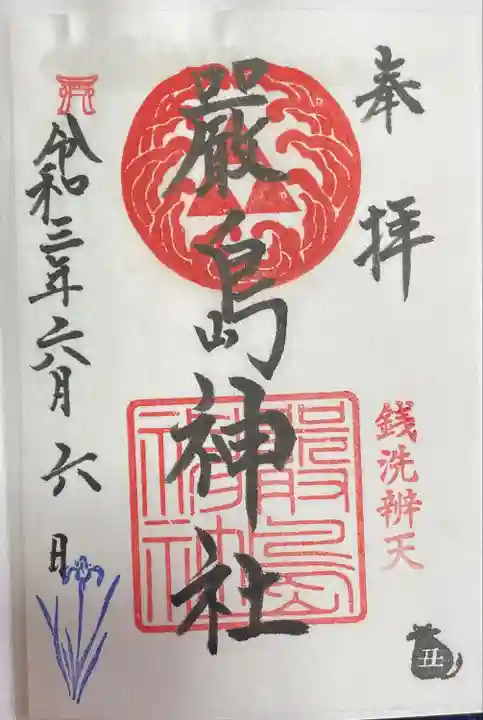 奉拝
銭洗辨天
丑
嚴島神社
嚴島神社
令和三年六月六日